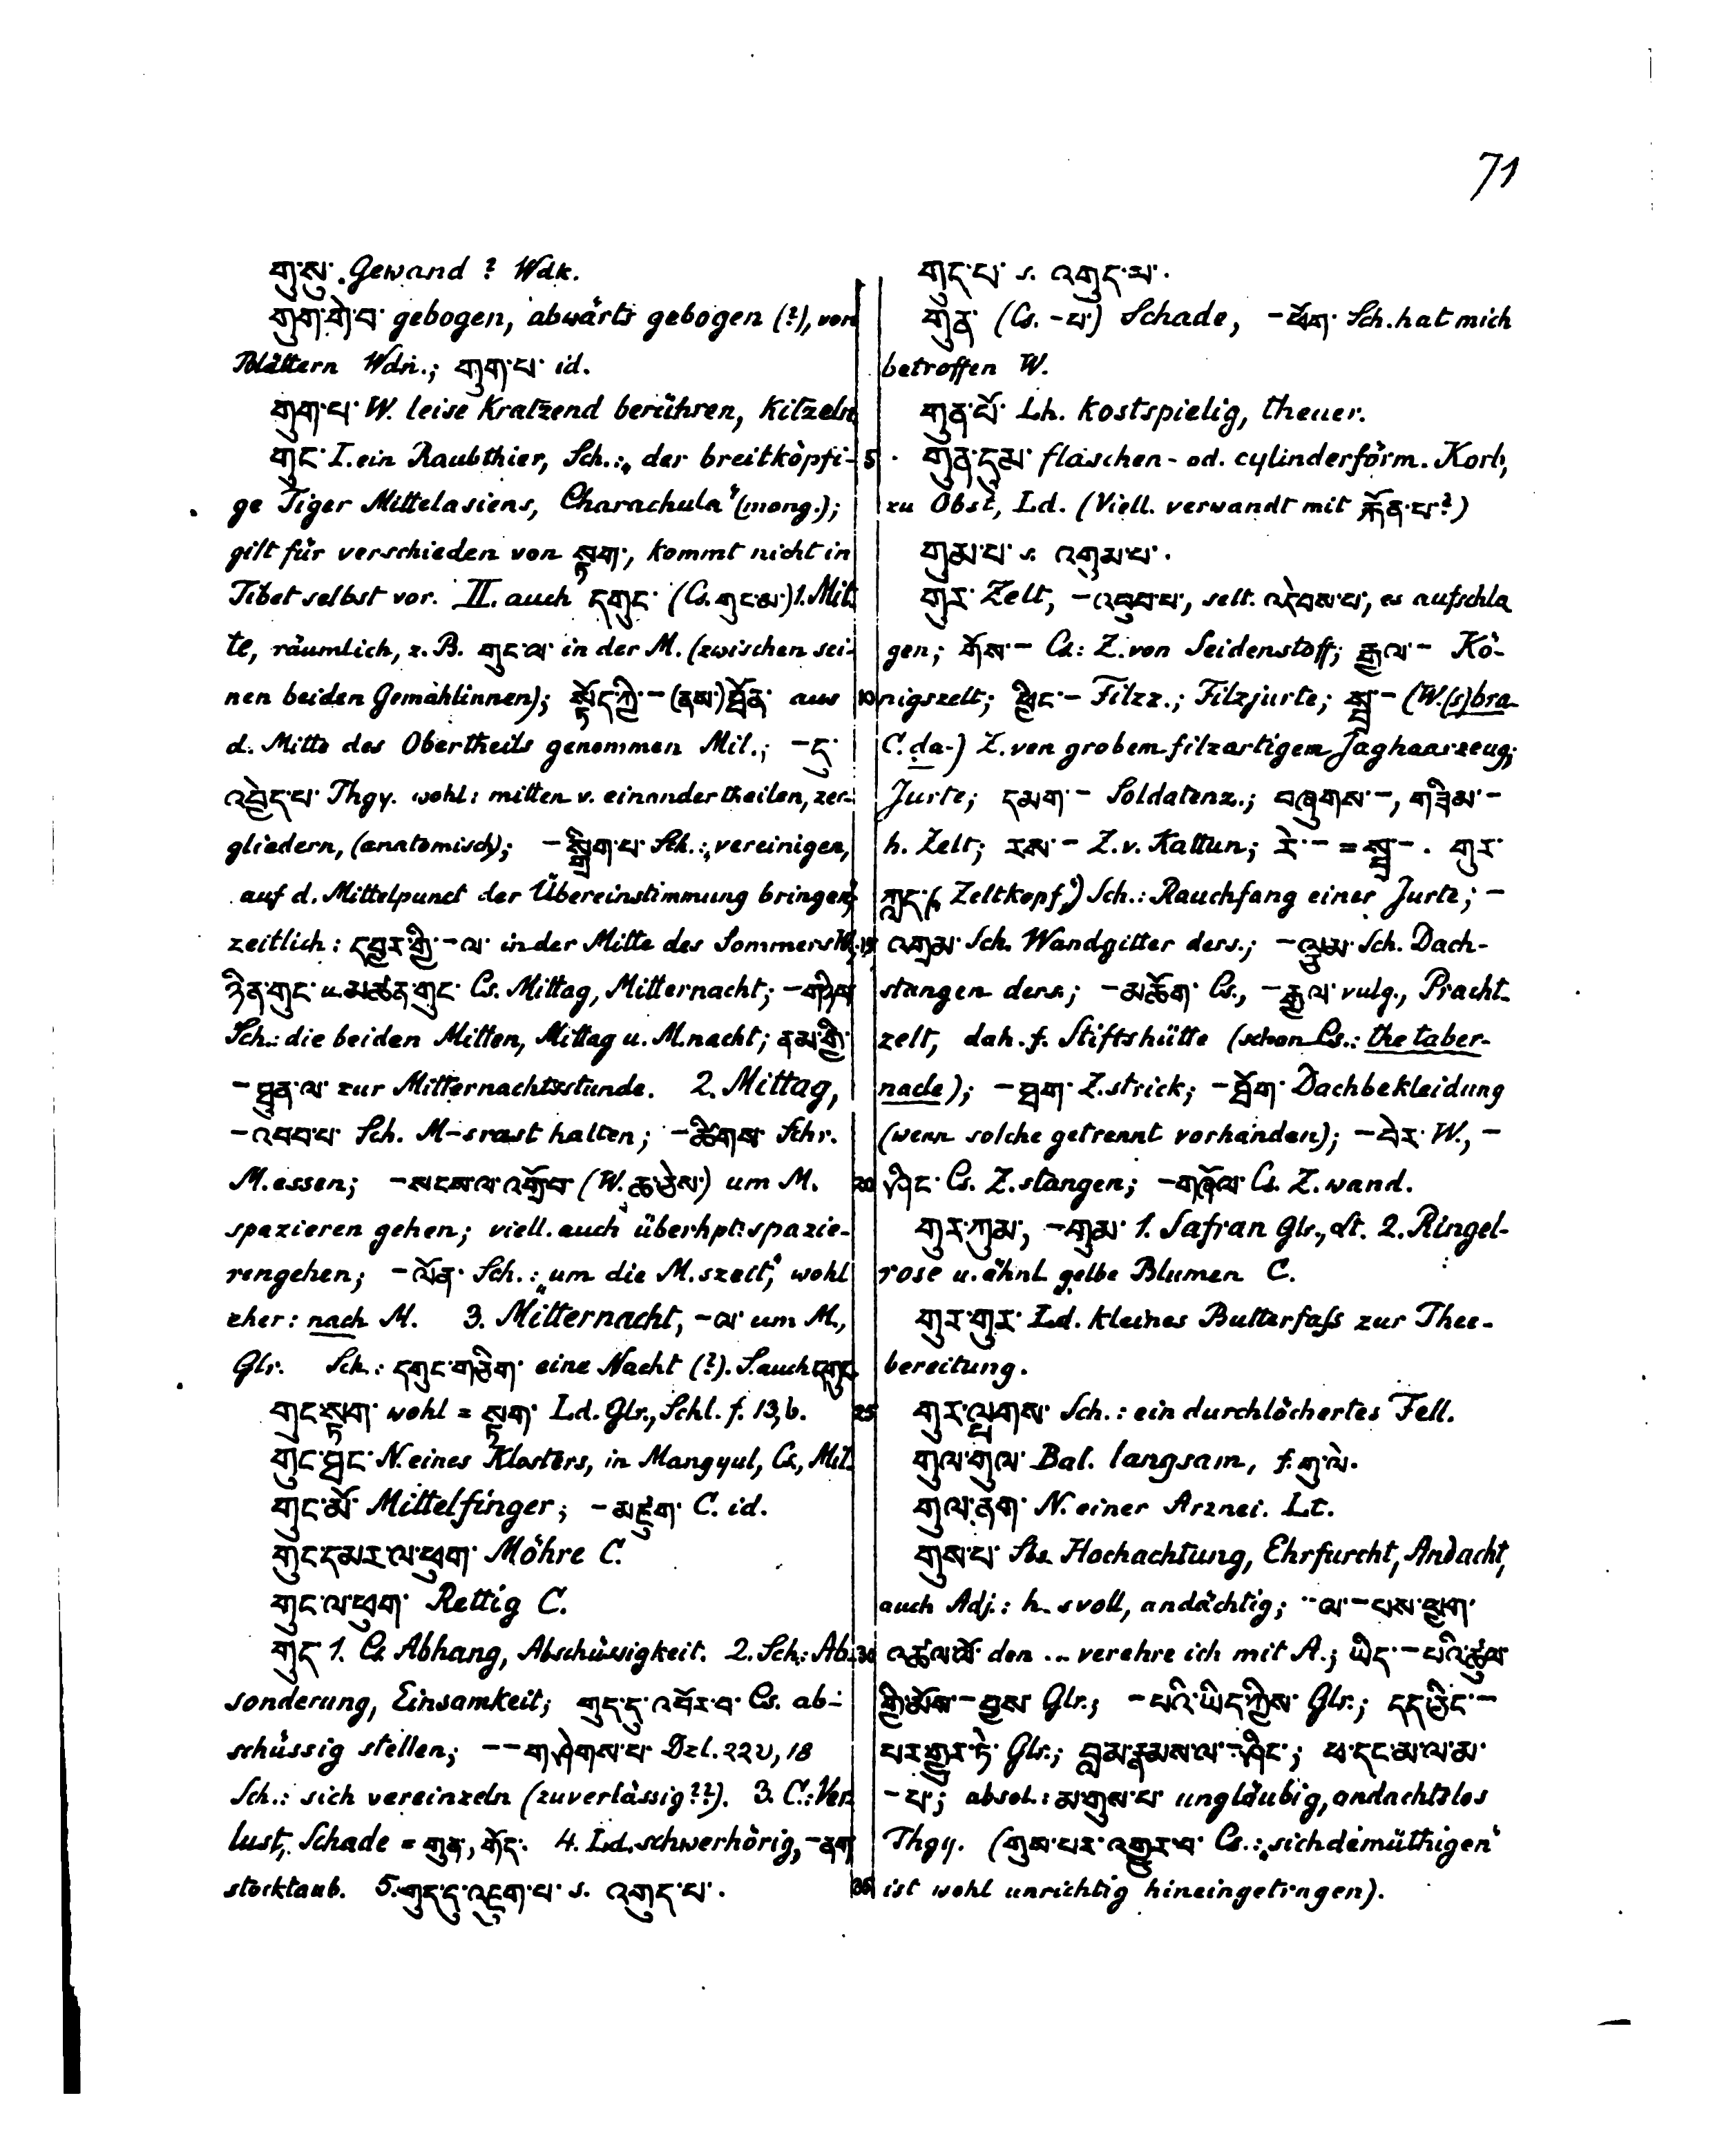 71
གུ་སུ་. Gewand ? Wdk.
གུག་གེ་བ་ gebogen, abwärts gebogen (?), von
Blättern Wdn.; གུག་པ་ id.
གུག་པ་ W. leise kratzend berühren, kitzeln
གུང་ I. ein Raubthier, Sch.: „der breitköpfi-
ge Tiger Mittelasiens, Charachula" (mong.);
gilt für verschieden von སྟག་, kommt nicht in
Tibet selbst vor. II. auch དགུང་ (Cs. གུང་མ་) 1. Mit-
te, räumlich, z. B. གུང་ལ་ in der M. (zwischen sei-
nen beiden Gemahlinnen); སྟོད་ཀྱི་ – (ནས་)ཐོན་ aus
d. Mitte des Obertheils genommen Mil.; – དུ་
འབྱེད་པ་ Thgy. wohl: mitten v. einander theilen, zer-
gliedern, (anatomisch); – སྒྲིག་པ་ Sch.: „vereinigen,
auf d. Mittelpunct der Übereinstimmung bringen"
zeitlich: དབྱར་གྱི་ – ལ་ in der Mitte des Sommers W.
ཉིན་གུང་ u. མཚན་གུང་ Cs. Mittag, Mitternacht; – གཉིས་
Sch.: die beiden Mitten, Mittag u. M.nacht; ནམ་གྱི་
– ཐུན་ལ་ zur Mitternachtsstunde. 2. Mittag,
– འབབ་པ་ Sch. M-srast halten; – ཚིགས་ Schr.
M. essen; – སངས་ལ་འགྲོ་བ་ (W. ཆ་ཅེས་) um M.
spazieren gehen; viell. auch überhpt: spazie-
rengehen; – ཡོན་ Sch.: „um die M.szeit", wohl
eher: nach M. 3. Mitternacht, – ལ་ um M.,
Glr. Sch.: དགུང་གཅིག་ eine Nacht (?). S. auch དགུང་
གུང་སྟག་ wohl = སྟག་ Ld. Glr., Schl. f. 13, b.
གུང་ཐང་ N. eines Klosters, in Mangyul, Cs, Mil.
གུང་མོ་ Mittelfinger; – མཛུག་ C. id.
གུང་དམར་ལ་ཕུག་ Möhre C.
གུང་ལ་ཕུག་ Rettig C.
གུད་ 1. Cs Abhang, Abschüssigkeit. 2. Sch.: Ab-
sonderung, Einsamkeit; གུད་དུ་འབོར་བ་ Cs. ab-
schüssig stellen; – – གཤེགས་པ་ Dzl. ༢༢༧, 18
Sch.: sich vereinzeln (zuverlässig??). 3. C.: Ver-
lust, Schade = གུན་, གོད་. 4. Ld. schwerhörig, – ནག་
stocktaub. 5. གུད་དུ་འཇུག་པ་ s. འགུད་པ་.
གུད་པ་ s. འགུད་པ་.
གུན་ (Cs. – པ་) Schade, – ཕོག་ Sch. hat mich
betroffen W.
གུན་པོ་ Lh. kostspielig, theuer.
5 གུན་དུམ་ flaschen- od. cylinderförm. Korb,
zu Obst, Ld. (Viell. verwandt mit རྐོན་པ་?)
གུམ་པ་ s. འགུམ་པ་.
གུར་ Zelt, – འབུབ་པ་, selt. འདེབས་པ་, es aufschla
gen; གོས་ – Cs.: Z. von Seidenstoff; རྒྱལ་ – Kö-
10 nigszelt; ཕྱིང་ – Filzz.; Filzjurte; སྦྲ་ – (W. (s)bra-
C. da-) Z. von grobem filzartigem Jaghaarzeug;
Jurte; དམག་ – Soldatenz.; བཞུགས་ –, གཟིམ་ –
h. Zelt; རས་ – Z. v. Kattun; རེ་ – = སྦྲ་ –. གུར་
ཀླད་ („Zeltkopf") Sch.: Rauchfang einer Jurte; –
15 འགྲམ་ Sch. Wandgitter ders.; – ལྕམ་ Sch. Dach-
stangen ders.; – མཆོག་ Cs., – རྒྱལ་ vulg., Pracht-
zelt, dah. f. Stiftshütte (schon Cs.: the taber-
nacle); – ཐག་ Z.strick; – ཐོག་ Dachbekleidung
(wenn solche getrennt vorhanden); – བེར་ W., –
20 ཤིང་ Cs. Z.stangen; – གཞོལ་ Cs. Z.wand.
གུར་ཀུམ་, – གུམ་ 1. Safran Glr., Lt. 2. Ringel-
rose u. ähnl. gelbe Blumen C.
གུར་གུར་ Ld. kleines Butterfass zur Thee-
bereitung.
25 གུར་ལྤགས་ Sch.: ein durchlöchertes Fell.
གུལ་གུལ་ Bal. langsam, f. གུ་ལེ་.
གུལ་ནག་ N. einer Arznei. Lt.
གུས་པ་ Sbs. Hochachtung, Ehrfurcht, Andacht,
auch Adj.: h.svoll, andächtig; ..ལ་ – པས་ཕྱག་
30 འཚལ་ལོ་ den ... verehre ich mit A.; ཡིད་ – པའི་ཚུལ་
གྱི་མོས་ – བྱས་ Glr.; – པའི་ཡིད་ཀྱིས་ Glr.; དད་ཅིང་ –
པར་གྱུར་ཏེ་ Glr.; བླ་མ་རྣམས་ལ་ – ཤིང་; ཕ་དང་མ་ལ་མ་
– པ་; absol.: མ་གུས་པ་ ungläubig, andachtslos
Thgy. (གུས་པར་འགྱུར་བ་ Cs.: „sich demüthigen"
35 ist wohl unrichtig hineingetragen).